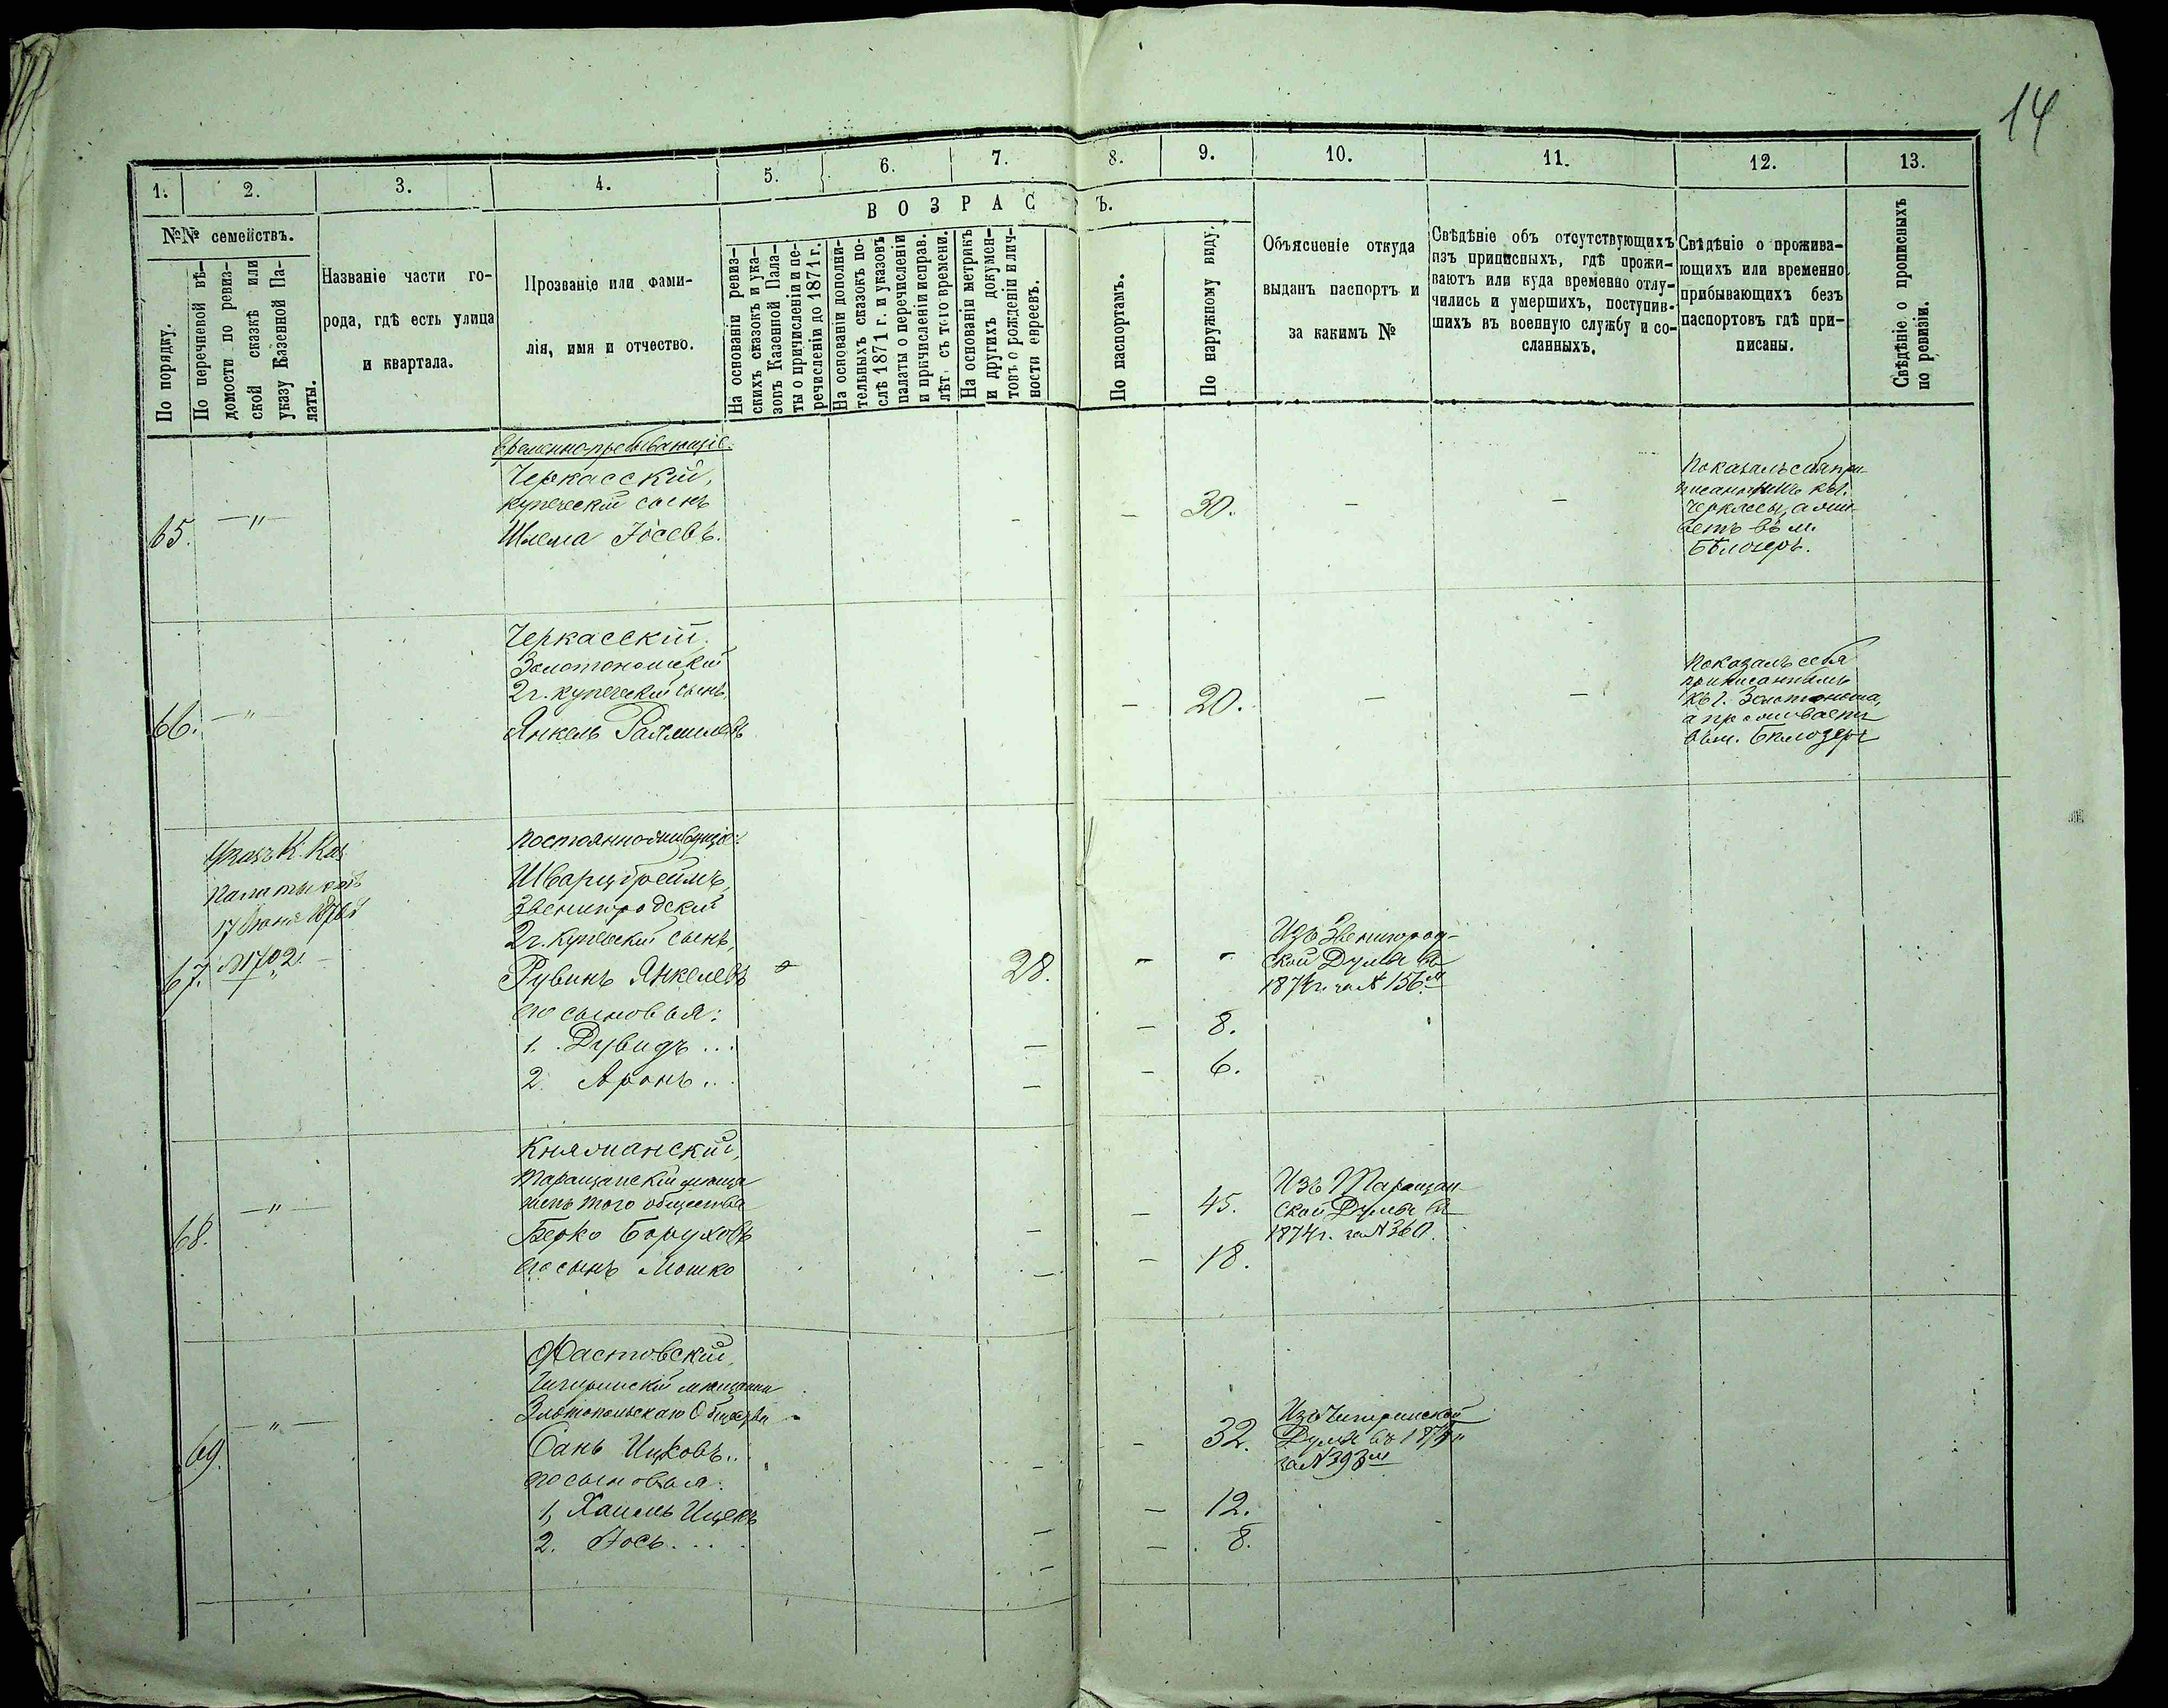 14
1.
2.
3.
4.
5.
6.
7.
8.
9.
10.
11.
12.
13.
№№ семействъ.
По порядку.
По перечневой вѣ-
домости по ревиз-
ской сказкѣ или
указу Казенной Па-
латы.
Названіе части го-
рода, гдѣ есть улица
и квартала.
Прозваніе или фами-
лія, имя и отчество.
ВОЗРАС Ъ.
На основаніи ревиз-
скихъ сказокъ и ука-
зовъ Казенной Пала-
ты о причисленіи и пе-
речисленіи до 1871 г.
На основаніи дополни-
тельныхъ сказокъ по-
слѣ 1871 г. и указовъ
палаты о перечисленіи
и причисленіи исправ.
лѣт. съ того времени.
На основаніи метрикъ
и другихъ докумен-
товъ о рожденіи и лич-
ности евреевъ.
По паспортамъ.
По наружному виду.
Объясненіе откуда
выданъ паспортъ и
за какимъ №
Свѣдѣніе объ отсутствующихъ
изъ приписныхъ, гдѣ прожи-
ваютъ или куда временно отлу-
чились и умершихъ, поступив-
шихъ въ военную службу и со-
сланныхъ.
Свѣдѣніе о прожива-
ющихъ или временно
прибывающихъ безъ
паспортовъ гдѣ при-
писаны.
Свѣдѣніе о прописныхъ
по ревизіи.
Временно пребывающіе
65. — " —
Черкасскій,
купеческій сынъ
Шлема Іосевъ.
— 30. — —
Показалъ себя при-
писаннымъ къ г.
Черкассы, а жив-
етъ въ м.
Бѣлозерѣ.
66. — " —
Черкасскій,
Золотоношскій
2 г. купеческій сынъ,
Янкель
— 20. — —
Показалъ себя
приписаннымъ
къ г. Золотоноша,
а проживаетъ
въ м. Бѣлозерѣ
Указъ К. Каз.
Палаты отъ
17 Іюня
67. № 1702. —
Постоянно живущіе:
Шварцбреймъ,
Звенигородскій
2 г. купеческій сынъ,
Рувинъ Янкелевъ
28. — —
Изъ Звенигород-
ской Думы въ
1874 г. за № 156 м
его сыновья:
1. Дувидъ ... — — 8.
2. Аронъ .. — — 6.
68. — " —
Княжанскій,
Таращанскій мѣща-
нинъ того общества
Берко Боруховъ
— — 45.
Изъ Таращан-
ской Думы въ
1874 г. за № 360.
его сынъ Мошко
— — 18.
69. — " —
Фастовскій,
Чигиринскій мѣщанинъ
Златопольскаго Общества
Санъ Ицковъ..
— — 32.
Изъ Чигиринской
Думы въ 1874 г.
за № 393 м
его сыновья:
1, Хаимъ Ицекъ — — 12.
2. Іось.... — — 8.